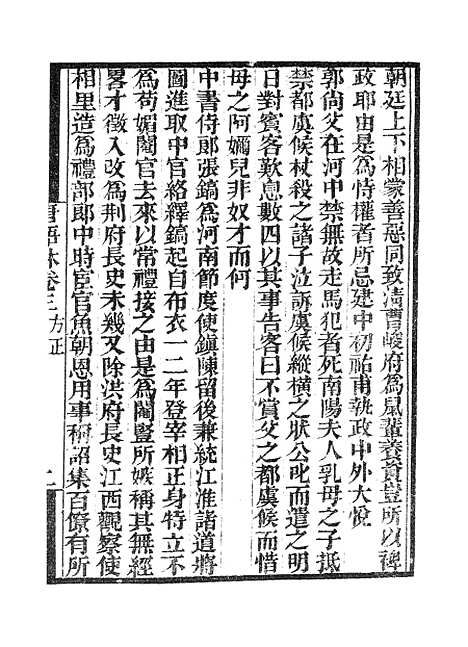 朝廷上下相蒙善惡同致清曹峻府爲鼠輩養資豈所以裨
政耶由是爲恃權者所忌建中初祐甫執政中外大悅
郭尙父在河中禁無故走馬犯者死南陽夫人乳母之子抵
禁都虞候杖殺之諸子泣訴虞候縱橫之狀公叱而遣之明
日對賓客歎息數四以其事告客曰不賞父之都虞候而惜
母之阿嬭兒非奴才而何
中書侍郎張鎬爲河南節度使鎭陳留後兼統江淮諸道將
圖進取中官絡繹鎬起自布衣一二年登宰相正身特立不
爲苟媚閹官去來以常禮接之由是爲閹豎所嫉稱其無經
畧才徵入改爲荆府長史未幾又除洪府長史江西觀察使
相里造爲禮部郎中時宦官魚朝恩用事稱詔集百僚有所
唐語林卷三 方正 二